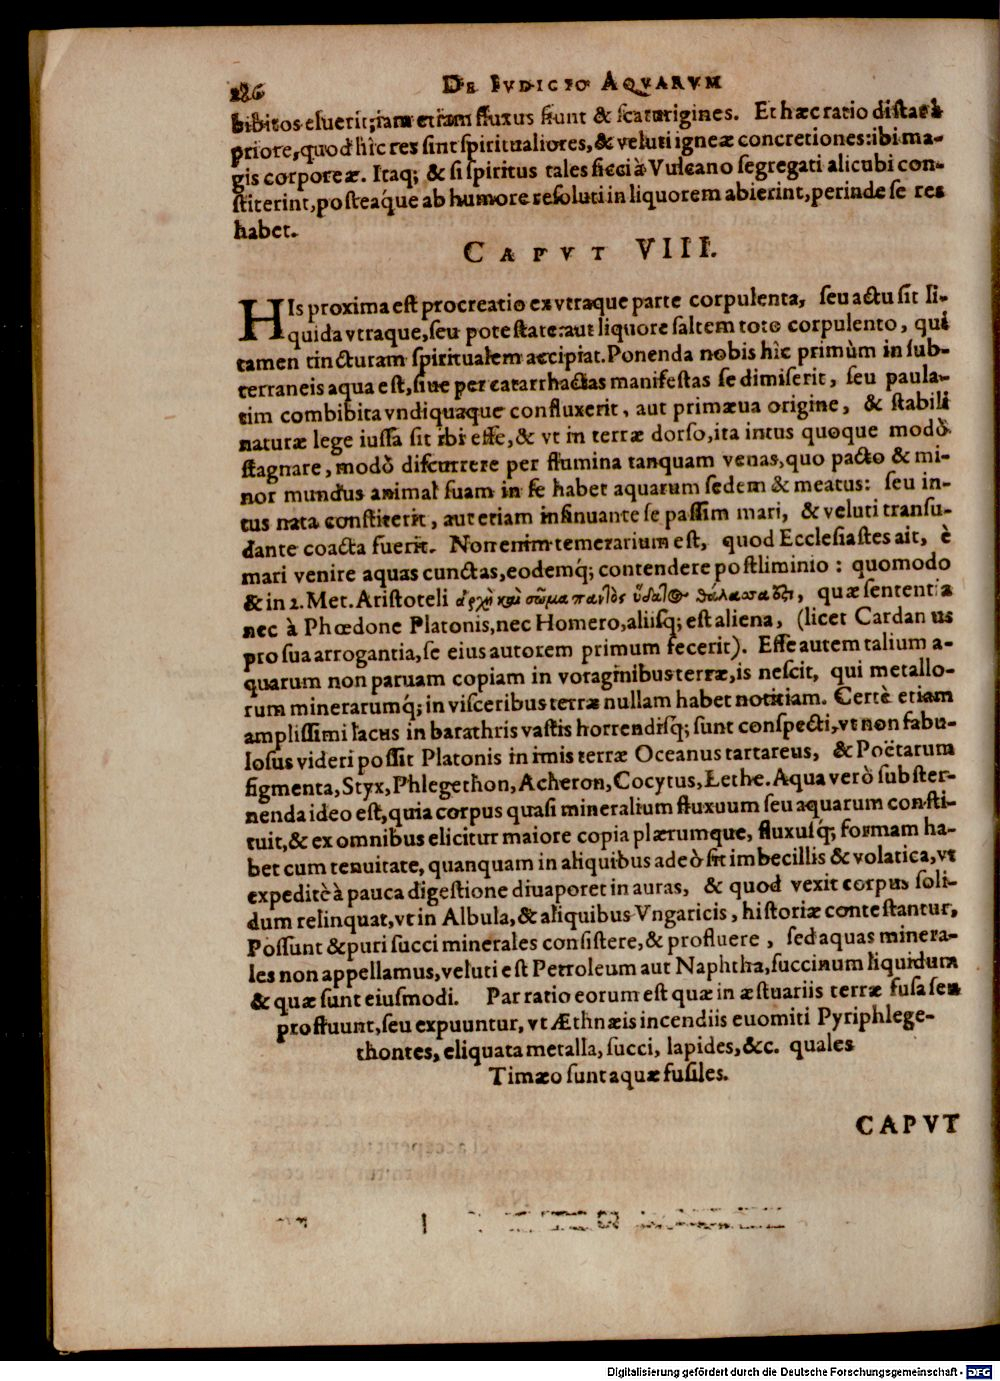 186 DE IVDICIO AQVARVM
bibitos eluerit; iam etiam fluxus fiunt & scaturigines. Et hæc ratio distat à
priore, quod hìc res sint spiritualiores, & veluti igneæ concretiones: ibi ma-
gis corporeæ. Itaq; & si spiritus tales sicci à Vulcano segregati alicubi con-
stiterint, posteáque ab humore resoluti in liquorem abierint, perinde se res
habet.
CAPVT VIII.
HIs proxima est procreatio ex vtraque parte corpulenta, seu actu sit li-
quida vtraque, seu potestate: aut liquore saltem toto corpulento, qui
tamen tincturam spiritualem accipiat. Ponenda nobis hìc primùm in sub-
terraneis aqua est, siue per catarrhactas manifestas se dimiserit, seu paula-
tim combibita vndiquaque confluxerit, aut primæua origine, & stabili
naturæ lege iussa sit ibi esse, & vt in terræ dorso, ita intus quoque modò
stagnare, modò discurrere per flumina tanquam venas, quo pacto & mi-
nor mundus animal suam in se habet aquarum sedem & meatus: seu in-
tus nata constiterit, aut etiam insinuante se passim mari, & veluti transu-
dante coacta fuerit. Non enim temerarium est, quod Ecclesiastes ait, è
mari venire aquas cunctas, eodemq́; contendere postliminio: quomodo
& in 2. Met. Aristoteli ἀρχὴ καὶ σῶμα παντὸς ὕδατος θάλαττα ἐστι, quæ sententia
nec à Phœdone Platonis, nec Homero, aliisq; est aliena, (licet Cardanus
pro sua arrogantia, se eius autorem primum fecerit). Esse autem talium a-
quarum non paruam copiam in voraginibus terræ, is nescit, qui metallo-
rum minerarumq́; in visceribus terræ nullam habet notitiam. Certè etiam
amplissimi lacus in barathris vastis horrendisq́; sunt conspecti, vt non fabu-
losus videri possit Platonis in imis terræ Oceanus tartareus, & Poëtarum
figmenta, Styx, Phlegethon, Acheron, Cocytus, Lethe. Aqua verò subster-
nenda ideo est, quia corpus quasi mineralium fluxuum seu aquarum consti-
tuit, & ex omnibus elicitur maiore copia plærumque, fluxusq́; formam ha-
bet cum tenuitate, quanquam in aliquibus adeò sit imbecillis & volatica, vt
expeditè à pauca digestione diuaporet in auras, & quod vexit corpus soli-
dum relinquat, vt in Albula, & aliquibus Vngaricis, historiæ contestantur,
Possunt & puri succi minerales consistere, & profluere, sed aquas minera-
les non appellamus, veluti est Petroleum aut Naphtha, succinum liquidum
& quæ sunt eiusmodi. Par ratio eorum est quæ in æstuariis terræ fusa seu
profluunt, seu expuuntur, vt Æthnæis incendiis euomiti Pyriphlege-
thontes, eliquata metalla, succi, lapides, &c. quales
Timæo sunt aquæ fusiles.
CAPVT
Digitalisierung gefördert durch die Deutsche Forschungsgemeinschaft - DFG